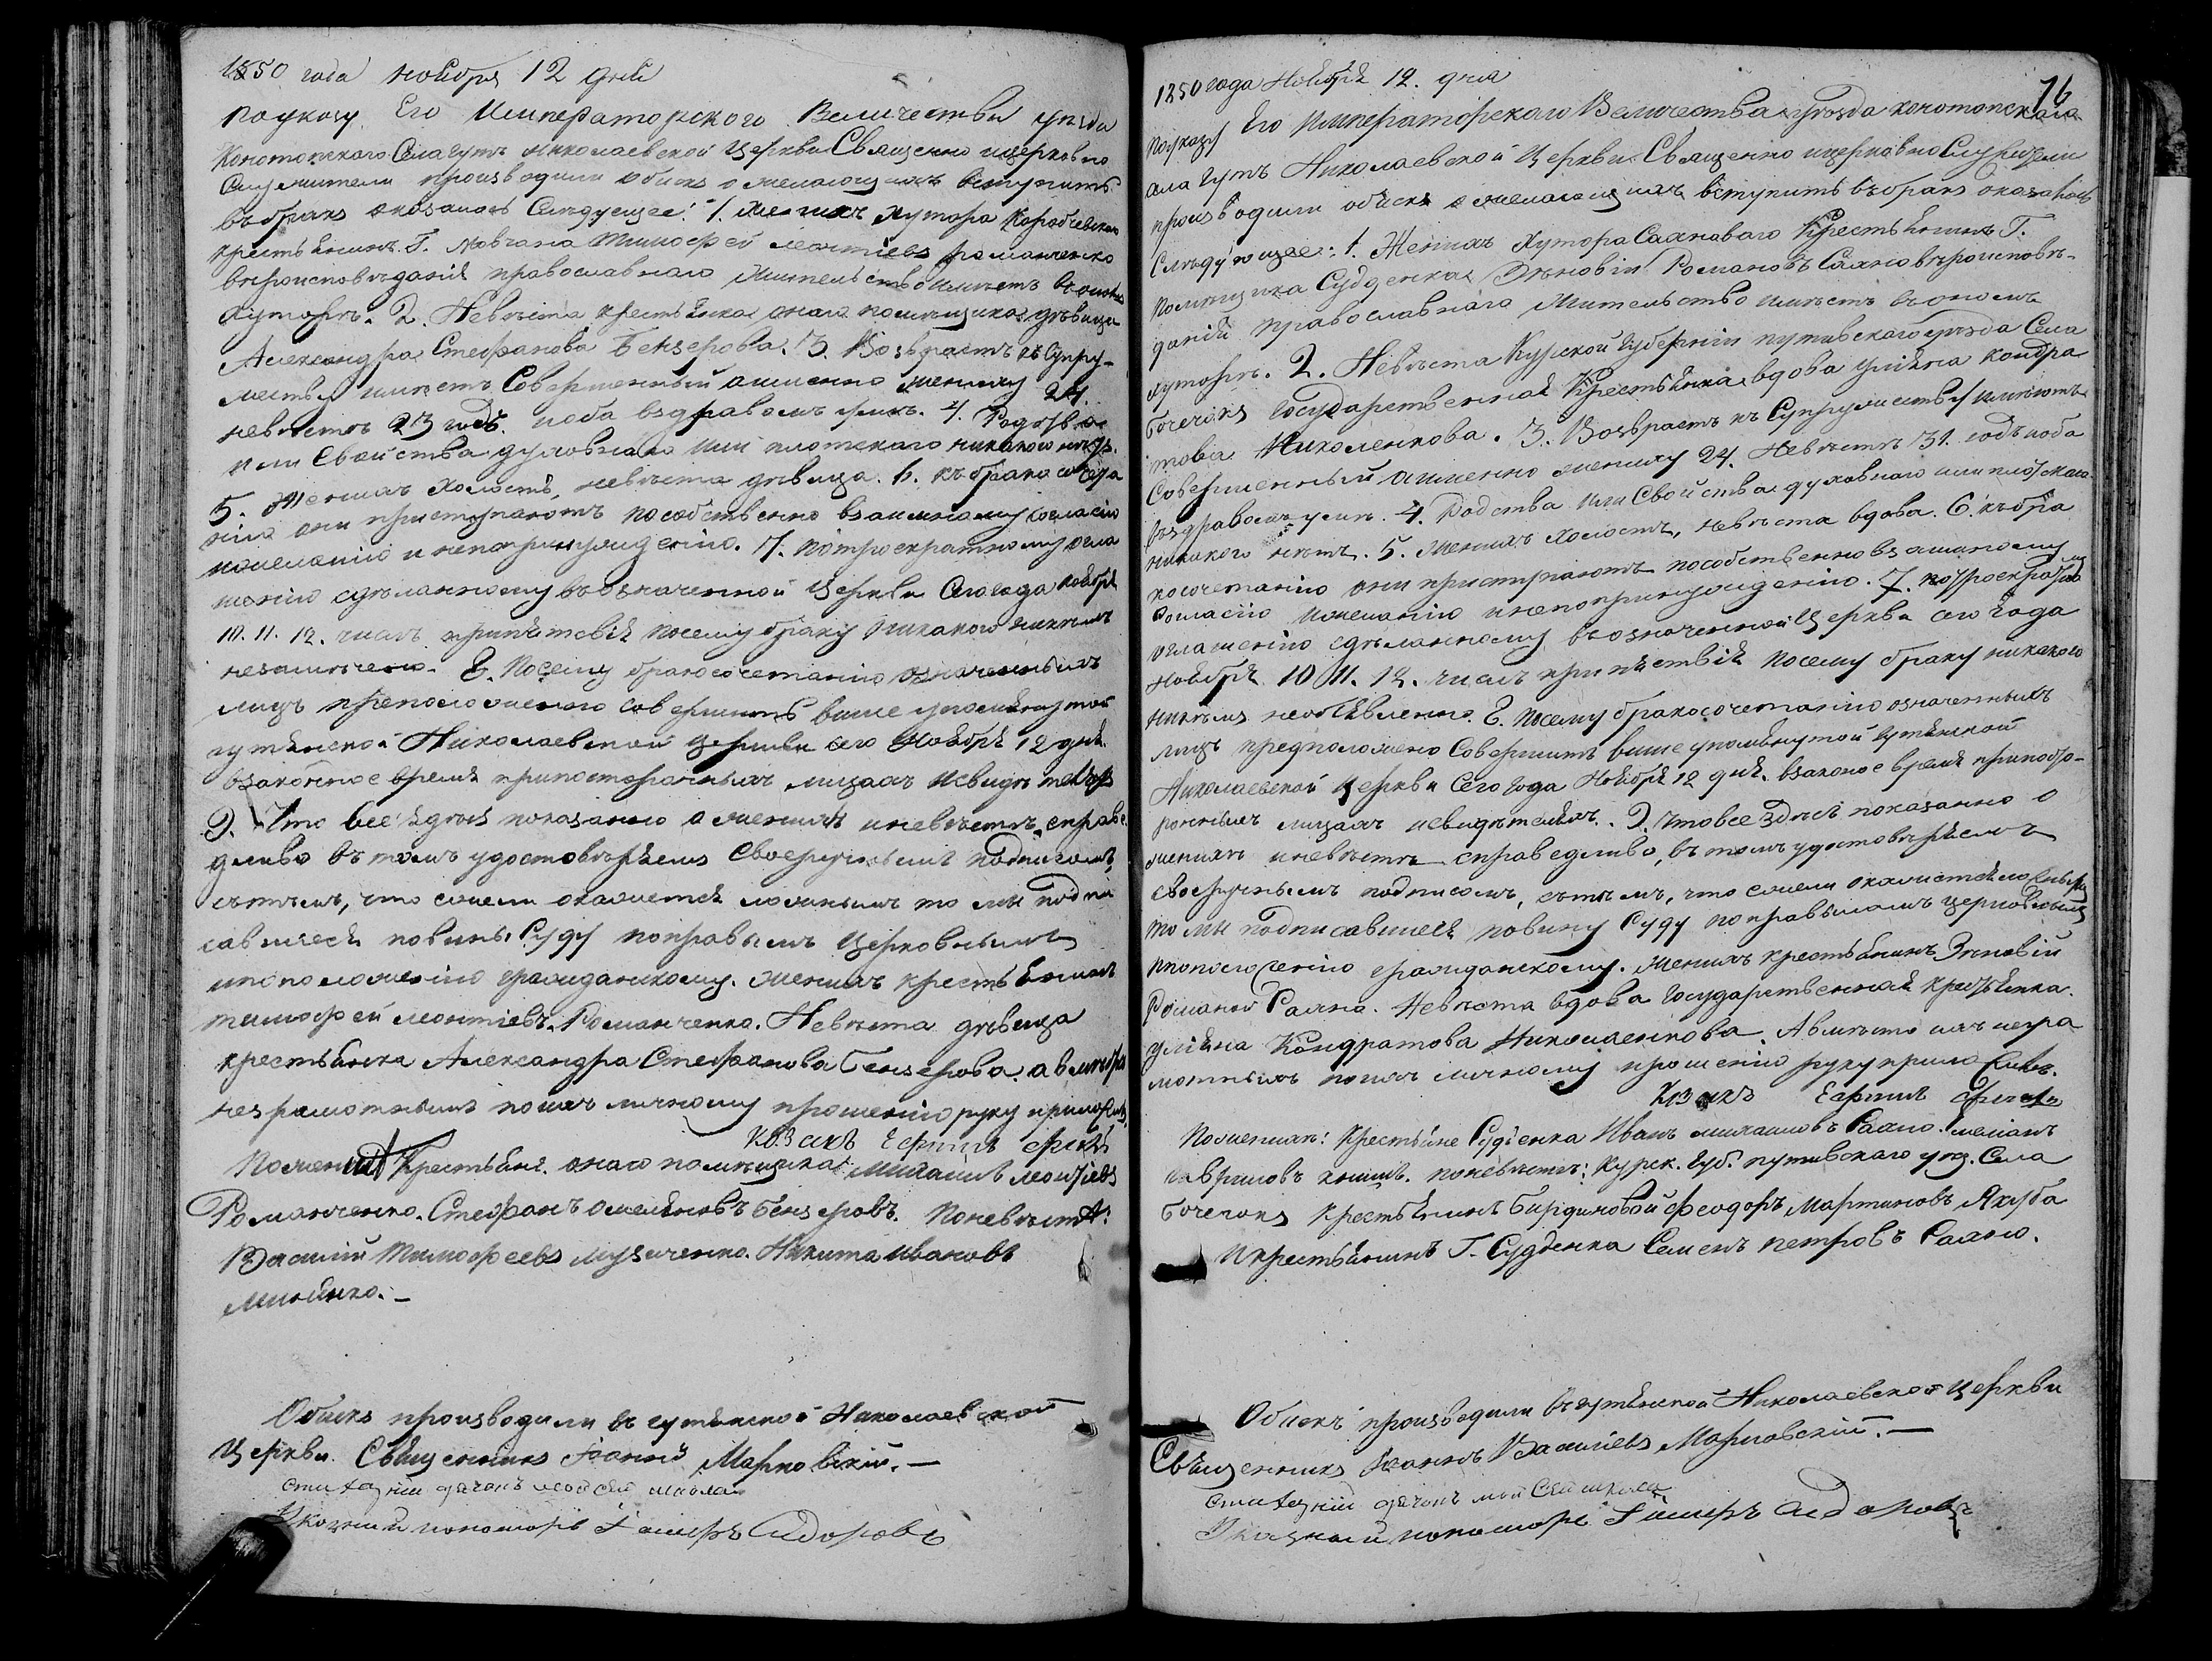 1850 года ноября 12 дня
По указу Его Императорского Величества уезда
Конотопского Села Гутъ Николаевской Церкви Священно и церковно
Служители производили обискъ о желающихъ вступить
въ бракъ оказалось Следующее: 1. Женихъ Хутора
крестьянинъ Г. Тимофей Леонтіевъ Романченко
вероисповеданія православнаго Жительство имѣетъ въ ономъ
Хуторѣ. 2. Невѣста крестьянка онаго помѣщика дѣвица
Александра Стефанова Бензерова. 3. Возврастъ къ Супру-
жеству имѣетъ Совершенный а именно жениху 24.
невѣстѣ 23 годъ. и оба въ здравомъ умѣ. 4. Родства
или Свойства духовнаго или плотскаго никакого нѣтъ.
5. Женихъ холостъ, невѣста дѣвица. 6. къ бракосочета
нію они приступаютъ по собственно взаимному согласію
и желанію и не по принужденію. 7. По троекратному огла
шенію сдѣланному въ означенной Церкви Сего года ноября
10. 11. 12. числъ препятствія посему браку никакого никѣмъ
незамѣчено. 8. Посему бракосочетанію означенныхъ
лицъ преположеного совершить выше упомянутой
гутянской Николаевской церкви сего Ноября 12 дня.
в законное время при посторонныхъ лицахъ и свидѣтеляхъ
9. Что все здѣсь показанно о женихѣ и невѣстѣ справе
дливо въ томъ удостовѣряемъ своеручнымъ подписомъ,
съ тѣмъ, что если окажется ложнымъ то мы подпи
савшіеся повины Суду по правиламъ Церковнымъ
и по положенію гражданскому. Женихъ крестьянинъ
Тимофей Леонтіевъ Романченко. Невѣста дѣвица
крестьянка Александра Стефанова Бензерова. а вмѣсто
неграмотныхъ по ихъ личному прошенію руку приложилъ
Козакъ Ефимъ
По женихѣ Крестьяне онаго помѣщика: Михаилъ Леонтіевъ
Романченко. Стефанъ Омеляновъ Бензеровъ. По невѣстѣ:
Василій Тимофеевъ Музыченко. Никита Ивановъ
Миненко.
Обискъ производили въ гутянской Николаевской
Церкви. Священникъ Іоаннъ Марковскій.
дячокъ
Указный пономарь Сидоровъ
76
1850 года Ноября 12. дня
По указу Его Императорскаго Величества уѣзда конотопскаго
села Гутъ Николаевской Церкви Священно и церковно Служители
производили обискъ о желающихъ вступить въ бракъ оказалось
Слѣдующее: 1. Женихъ Хутора Саяноваго Крестьянинъ Г.
Помѣщика Судденка Зѣновій Романовъ Саяно вѣроисповѣ-
данія православнаго Жительство имѣетъ въ ономъ
хуторѣ. 2. Невѣста Курской Губерніи путивскаго уѣзда Села
Бочечокъ Государственная Крестьянка вдова Уліяна Кондра
това Николенкова. 3. Возврастъ къ Супружеству имѣютъ
Совершенный а именно жениху 24. Невѣстѣ 31. годъ и оба
въ здравомъ умѣ. 4. Родства или Свойства духовнаго или плотскаго
никакого нѣтъ. 5. Женихъ холостъ, невѣста вдова. 6. къ бра
косочетанію они приступаютъ по собственно взаимному
согласію и желанію и не по принужденію. 7. по троекратному
оглашенію сдѣланному въ означенной Церкви сего года
Ноября 10. 11. 12. числъ препятствія посему браку никакого
никѣмъ необъявленно. 8. Посему бракосочетанію означенныхъ
лицъ предположено Совершить выше упомянутой Гутянской
Николаевской Церкви Сего года Ноября 12 дня. в законое время при посто-
ронныхъ лицахъ и свидѣтеляхъ. 9. Что все здѣсь показанно о
женихѣ и невѣстѣ справедливо, въ томъ удостовѣряемъ
своеручнымъ подписомъ, съ тѣмъ, что если окажется ложнымъ
то мы подписавшіеся повину Суду по правиламъ церковнымъ
и по положенію гражданскому. Женихъ крестьянинъ Зиновій
Романовъ Саяно. Невѣста вдова Государственная крестьянка
Уліяна Кондратова Николаенкова. А вмѣсто ихъ негра
мотныхъ по ихъ личному прошенію руку приложилъ.
Козакъ Ефимъ
По женихѣ: Крестьяне Судденка Иванъ Михаиловъ Саяно.
Гавриловъ по невѣстѣ: Курск. Губ. путивскаго уѣз. Села
Бочечокъ Крестьянинъ Феодоръ Мартиновъ Якуба
и крестьянинъ Г. Судденка Семенъ Петровъ Саяно.
Обискъ производили въ гутянской Николаевской церкви
Священникъ Іоаннъ Василіевъ Марковскій.
дячокъ
Указный пономарь Сидоровъ